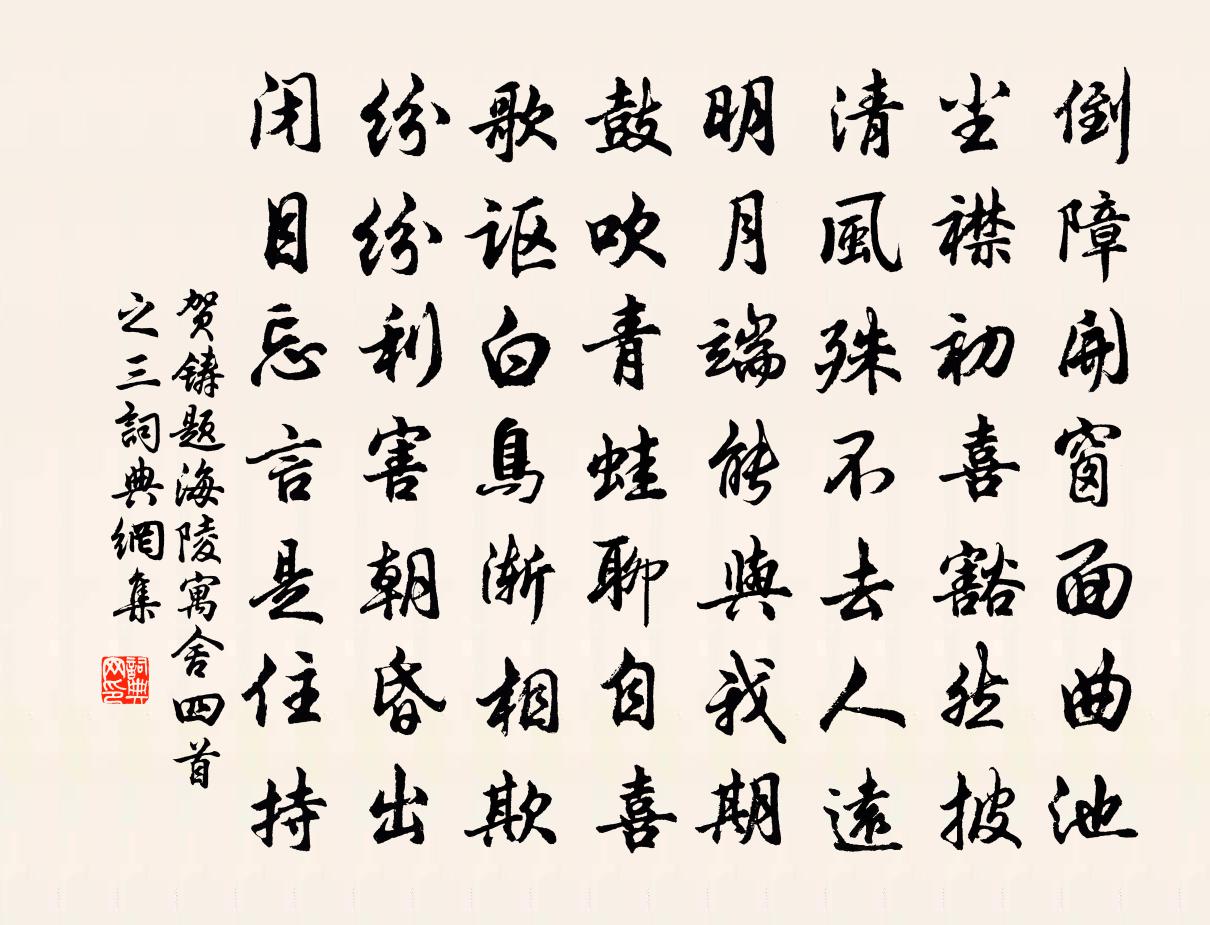 倒障開窗面曲池
尘襟初喜豁然披
清風殊不去人遠
明月端能與我期
鼓吹青蛙聊自喜
歌讴白鳥渐相欺
纷纷利害朝昏出
闭目忘言是住持
贺鑄题海陵寓舍四首
之三詞典網集
詞典
网印